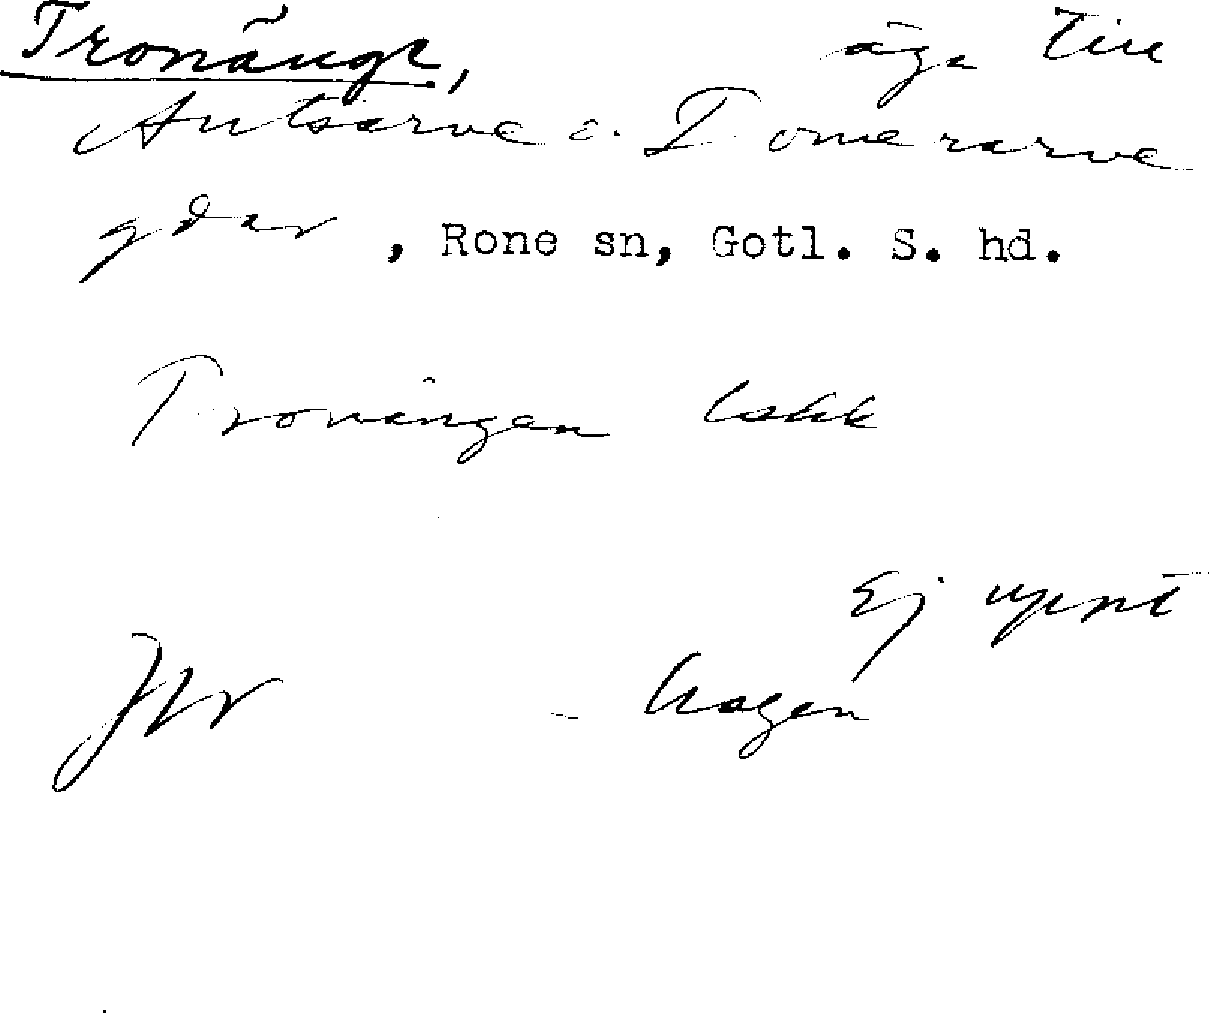 Tronänge, äga till
Autsarve o. Tomerarve
gdar, Rone sn, Gotl. S. hd.
Tronängen
Ej uppt
- hagen